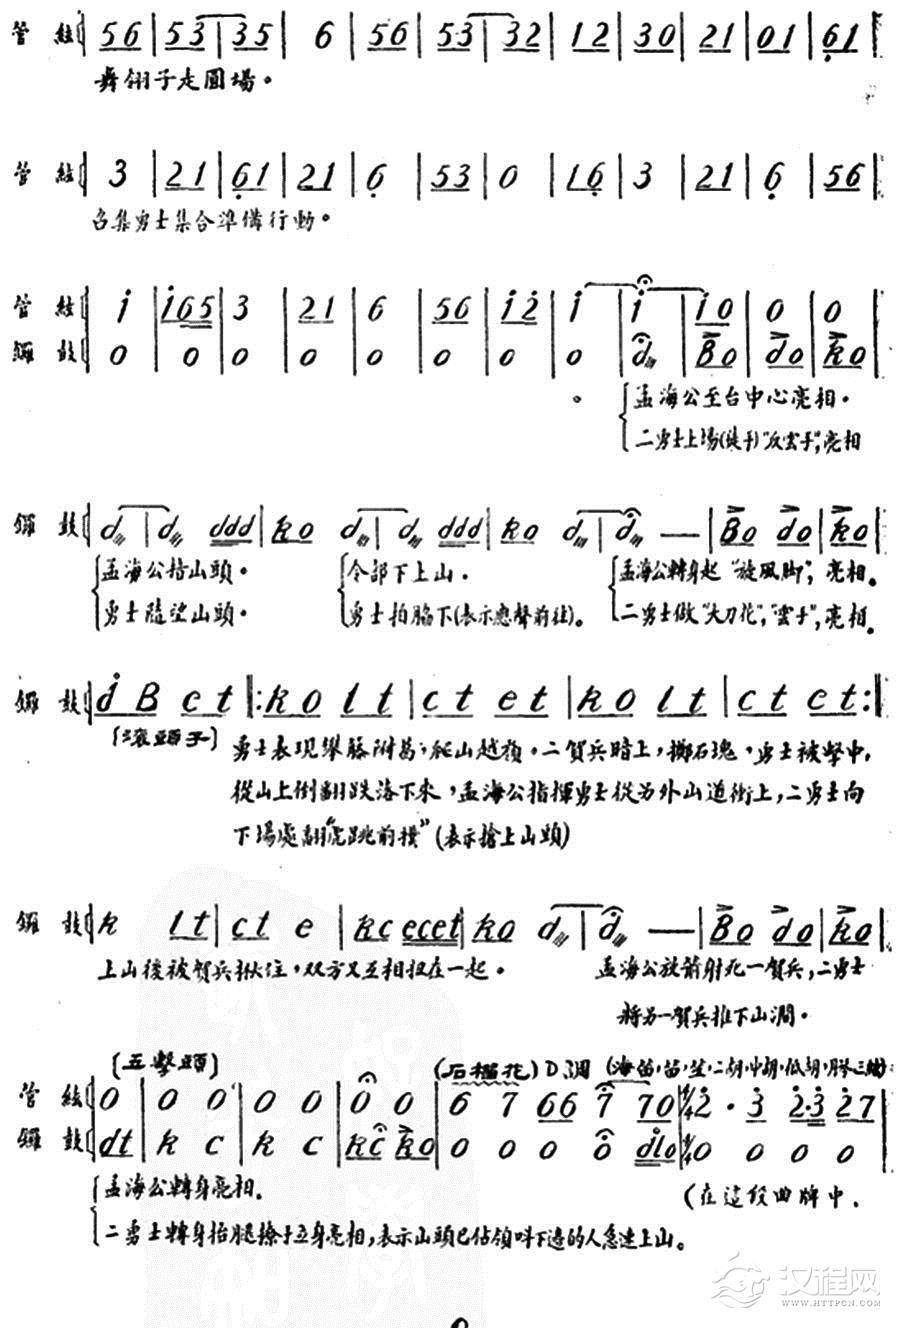 管 絃 56 | 53 | 35 | 6 | 56 | 53 | 32 | 12 | 30 | 21 | 01 | 61 |
舞翎子走圓場。
管 絃 3 | 21 | 61 | 21 | 6 | 53 | 0 | 16 | 3 | 21 | 6 | 56
召集勇士集合準備行動。
管 絃 i | i65 | 3 | 21 | 6 | 56 | i2 | i | i | i0 | 0 | 0
鑼 鼓 0 | 0 | 0 | 0 | 0 | 0 | 0 | 0 | d | Bo | do | ko
孟海公至台中心亮相。
二勇士上場(徒手)"反雲子",亮相
鑼 鼓 d | d ddd | ko d | d ddd | ko d | d — | Bo do | ko
孟海公指山頭。 令部下上山。 孟海公轉身起"旋風脚",亮相。
勇士隨望山頭。 勇士拍脇下(表示應聲前往)。 二勇士做"大刀花","雲手",亮相。
鑼 鼓 d B c t |: k o l t | c t e t | k o l t | c t c t :|
(滚頭子) 勇士表現攀藤附葛,爬山越嶺,二賀兵暗上,擲石塊,勇士被擊中,
從山上倒翻跌落下來,孟海公指揮勇士從另外山道衝上,二勇士向
下場處翻"虎跳前撲"(表示搶上山頭)
鑼 鼓 k lt | ct e | kc ecet | ko d | d — | Bo do | ko
上山後被賀兵揪住,双方又互相扭在一起。 孟海公放箭射死一賀兵,二勇士
將另一賀兵推下山澗。
(五擊頭) (石榴花) D調 (海笛·笛·笙·二胡·中胡·低胡·
管 絃 0 | 0 0 | 0 0 | 0 0 | 6 7 66 7 70 | 4/4 2 · 3 2·3 27
鑼 鼓 dt | k c | k c | kc ko | 0 0 0 0 dlo | 4/4 0 0 0 0
孟海公轉身亮相。 (在這段曲牌中.
二勇士轉身抬腿撩手立身亮相,表示山頭已佔領叫下邊的人急速上山。
汉程网
WWW.HTTPCN.COM